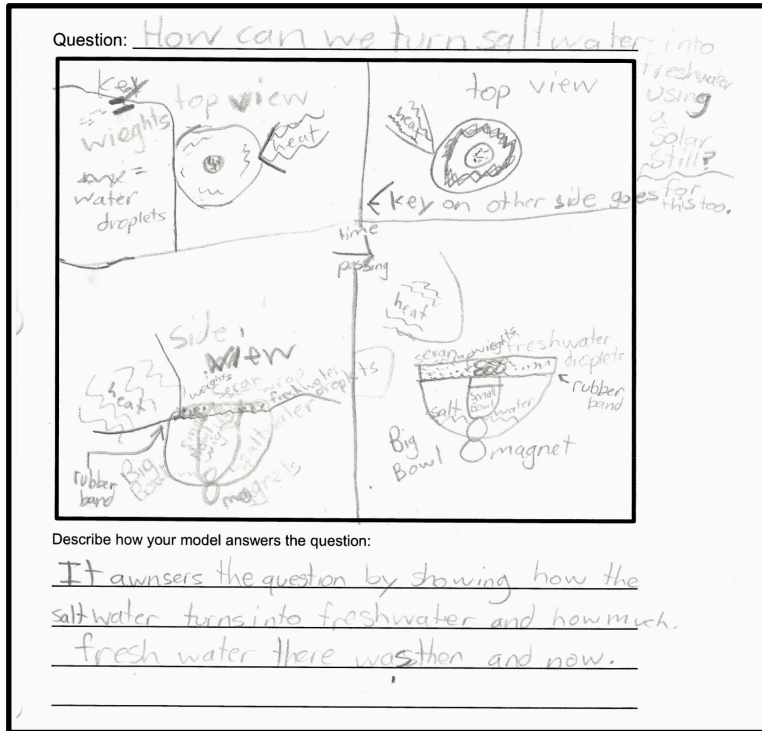 Question: How can we turn saltwater into
freshwater
using
a
Solar
Still?
key
wieghts
=
water
droplets
top view
heat
top view
heat
key on other side goes for
this too.
time
passing
side
view
heat
weights
seran wrap
freshwater
droplets
salt water
Big
Bowl
magnets
rubber
band
heat
seran wrap wieghts freshwater
droplets
rubber
band
small
Bowl
salt water
Big
Bowl
magnet
Describe how your model answers the question:
It awnsers the question by showing how the
saltwater turns into freshwater and how much.
fresh water there was then and now.